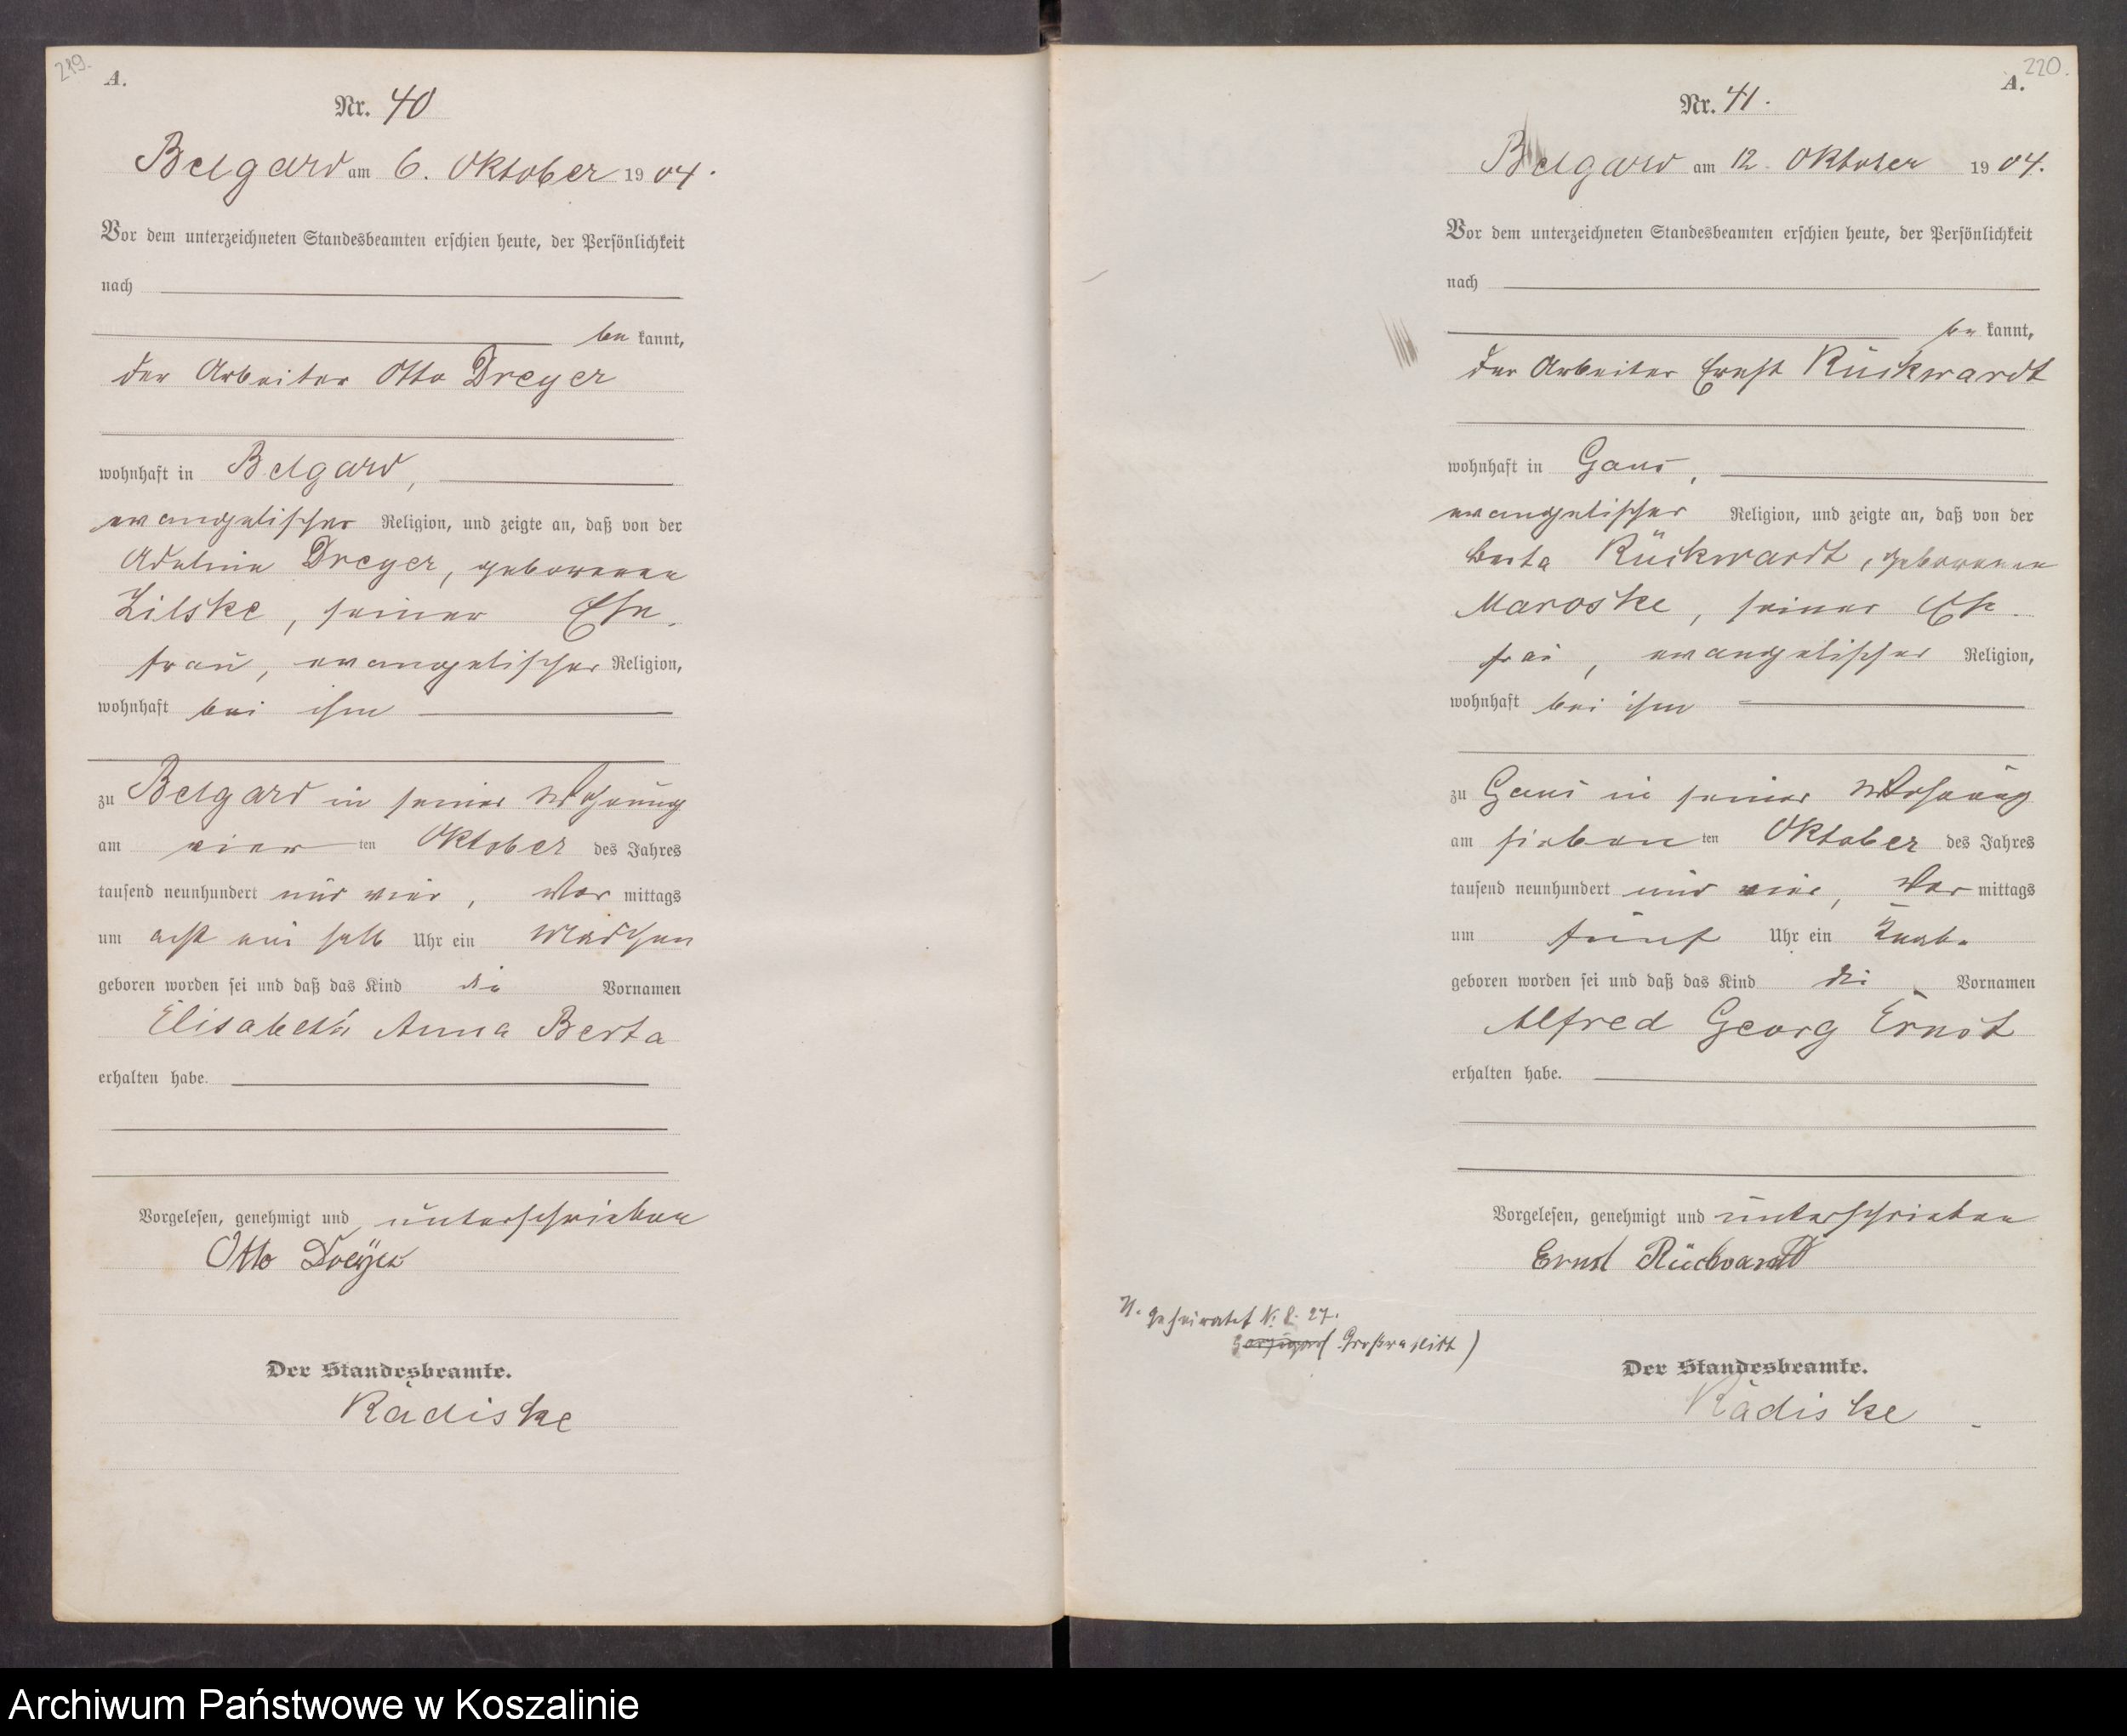 219.
A.
Nr. 40
Belgard am 6. Oktober 1904.
Vor dem unterzeichneten Standesbeamten erschien heute, der Persönlichkeit
nach
be kannt,
der Arbeiter Otto Dreyer
wohnhaft in Belgard,
evangelischer Religion, und zeigte an, daß von der
Adeline Dreyer, geborenen
Zilske, seiner Ehe
frau, evangelischer Religion,
wohnhaft bei ihm
zu Belgard in seiner Wohnung
am vier ten Oktober des Jahres
tausend neunhundert und vier, Vor mittags
um acht ein halb Uhr ein Mädchen
geboren worden sei und daß das Kind die Vornamen
Elisabeth Anna Berta
erhalten habe.
Vorgelesen, genehmigt und unterschrieben
Otto Dreÿer
Der Standesbeamte.
Rädiske
220.
A.
Nr. 41.
Belgard am 12. Oktober 1904.
Vor dem unterzeichneten Standesbeamten erschien heute, der Persönlichkeit
nach
be kannt,
der Arbeiter Ernst Rückwardt
wohnhaft in Gans,
evangelischer Religion, und zeigte an, daß von der
Berta Rückwardt, geborenen
Maroske, seiner Ehe
frau, evangelischer Religion,
wohnhaft bei ihm
zu Gans in seiner Wohnung
am sieben ten Oktober des Jahres
tausend neunhundert und vier, Vor mittags
um fünf Uhr ein Knabe
geboren worden sei und daß das Kind die Vornamen
Alfred Georg Ernst
erhalten habe.
Vorgelesen, genehmigt und unterschrieben
Ernst Rückwardt
geheiratet N. 8. 27.
Der Standesbeamte.
Rädiske
Archiwum Państwowe w Koszalinie